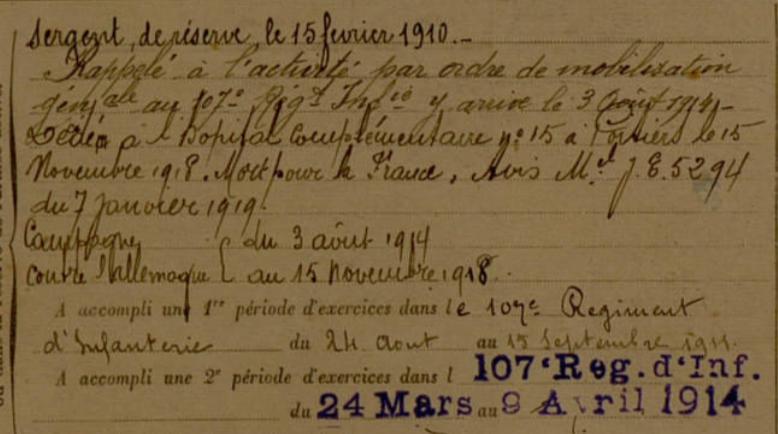 Sergent, de réserve, le 15 février 1910.-
Rappelé à l'activité par ordre de mobilisation
génale au 107e Régt Infie y arrive le 3 Août 1914-
Décédé à l'Hopital Complémentaire no 15 à Poitiers le 15
Novembre 1918. Mort pour la France, Avis Mel J.E. 5294
du 7 Janvier 1919.
Campagne { du 3 août 1914
contre l'allemagne { au 15 Novembre 1918.
A accompli une 1re période d'exercices dans le 107e Regiment
d'Infanterie du 24 Aout au 15 Septembre 1911.
A accompli une 2e période d'exercices dans l 107e Reg. d'Inf.
du 24 Mars au 9 Avril 1914